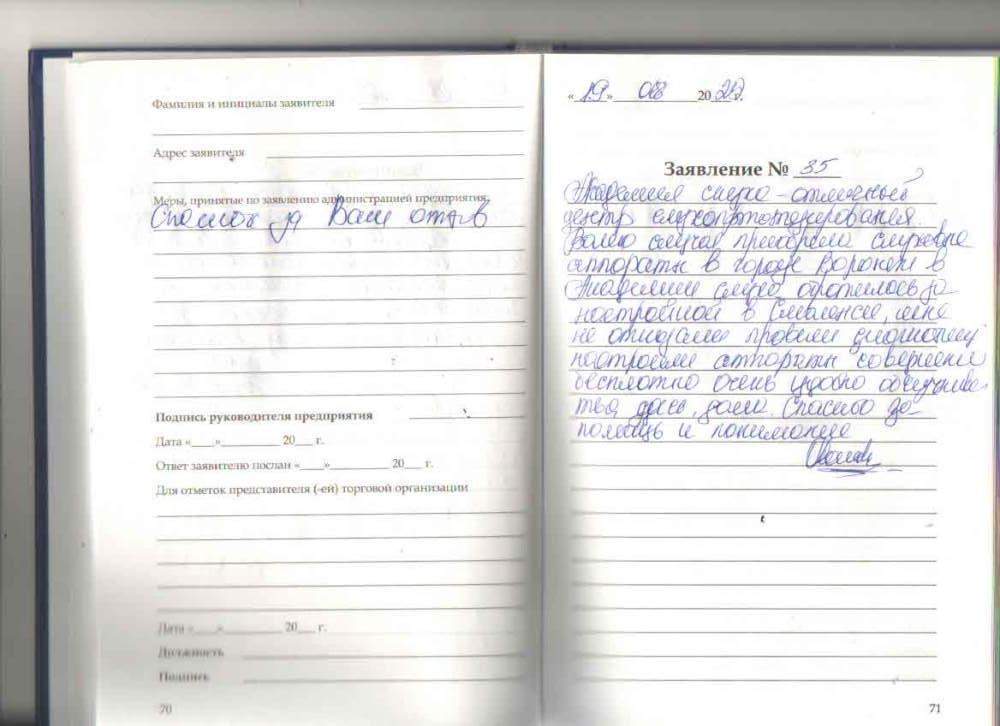 Фамилия и инициалы заявителя
Адрес заявителя
Меры, принятые по заявлению администрацией предприятия
Спасибо за Ваш отзыв
Подпись руководителя предприятия
Дата «___»__________ 20___ г.
Ответ заявителю послан «___»__________ 20___ г.
Для отметок представителя (-ей) торговой организации
Дата «___»__________ 20___ г.
Должность
Подпись
70
«19» 08 2022 г.
Заявление № 35
Академия слуха - отличный
центр слухопротезирования.
Волею случая приобрела слуховые
аппараты в городе Воронеж в
Академии слуха обратилась за
настройкой в Смоленске, мне
не отказали провели диагностику
настроили аппараты совершенно
бесплатно очень удобно
Спасибо за
помощь и понимание
71